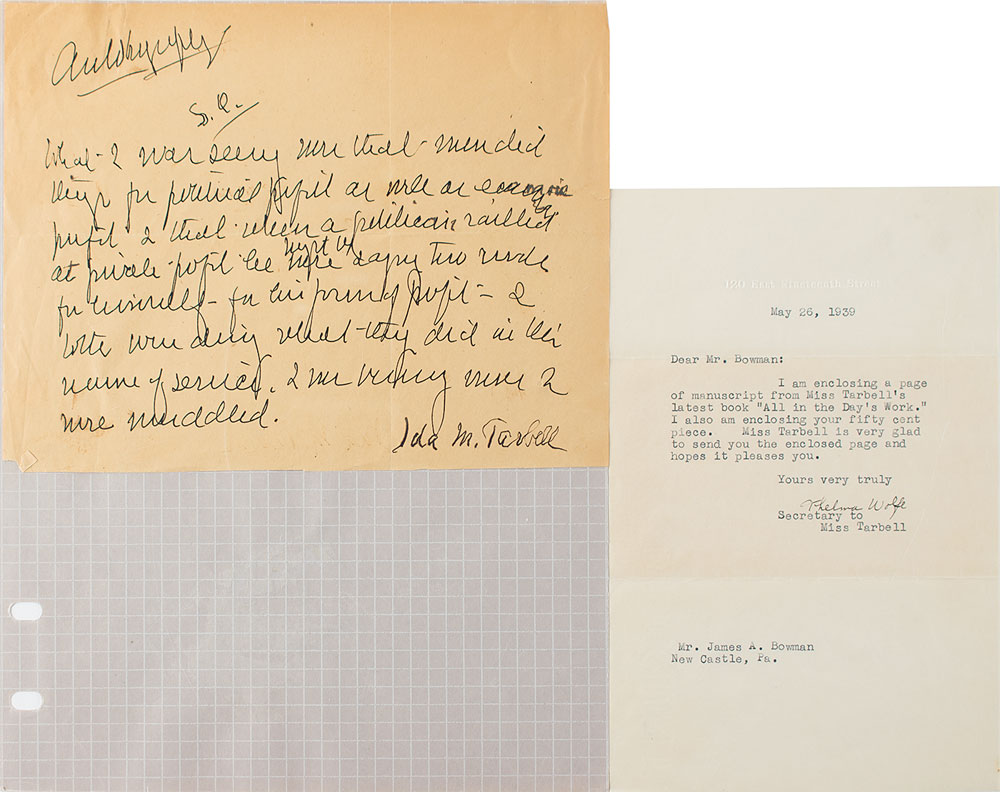 Autobiography
S. O.
What I was seeing was that men did
things for political profit as well as
profit & that when a politician railled
at private profit he might be
for himself - for his form of profit - I
what they did in the
name of service. I was being more &
more muddled.
Ida M. Tarbell
120 East Nineteenth Street
May 26, 1939
Dear Mr. Bowman:
I am enclosing a page
of manuscript from Miss Tarbell's
latest book "All in the Day's Work."
I also am enclosing your fifty cent
piece. Miss Tarbell is very glad
to send you the enclosed page and
hopes it pleases you.
Yours very truly
Thelma Wolfe
Secretary to
Miss Tarbell
Mr. James A. Bowman
New Castle, Pa.